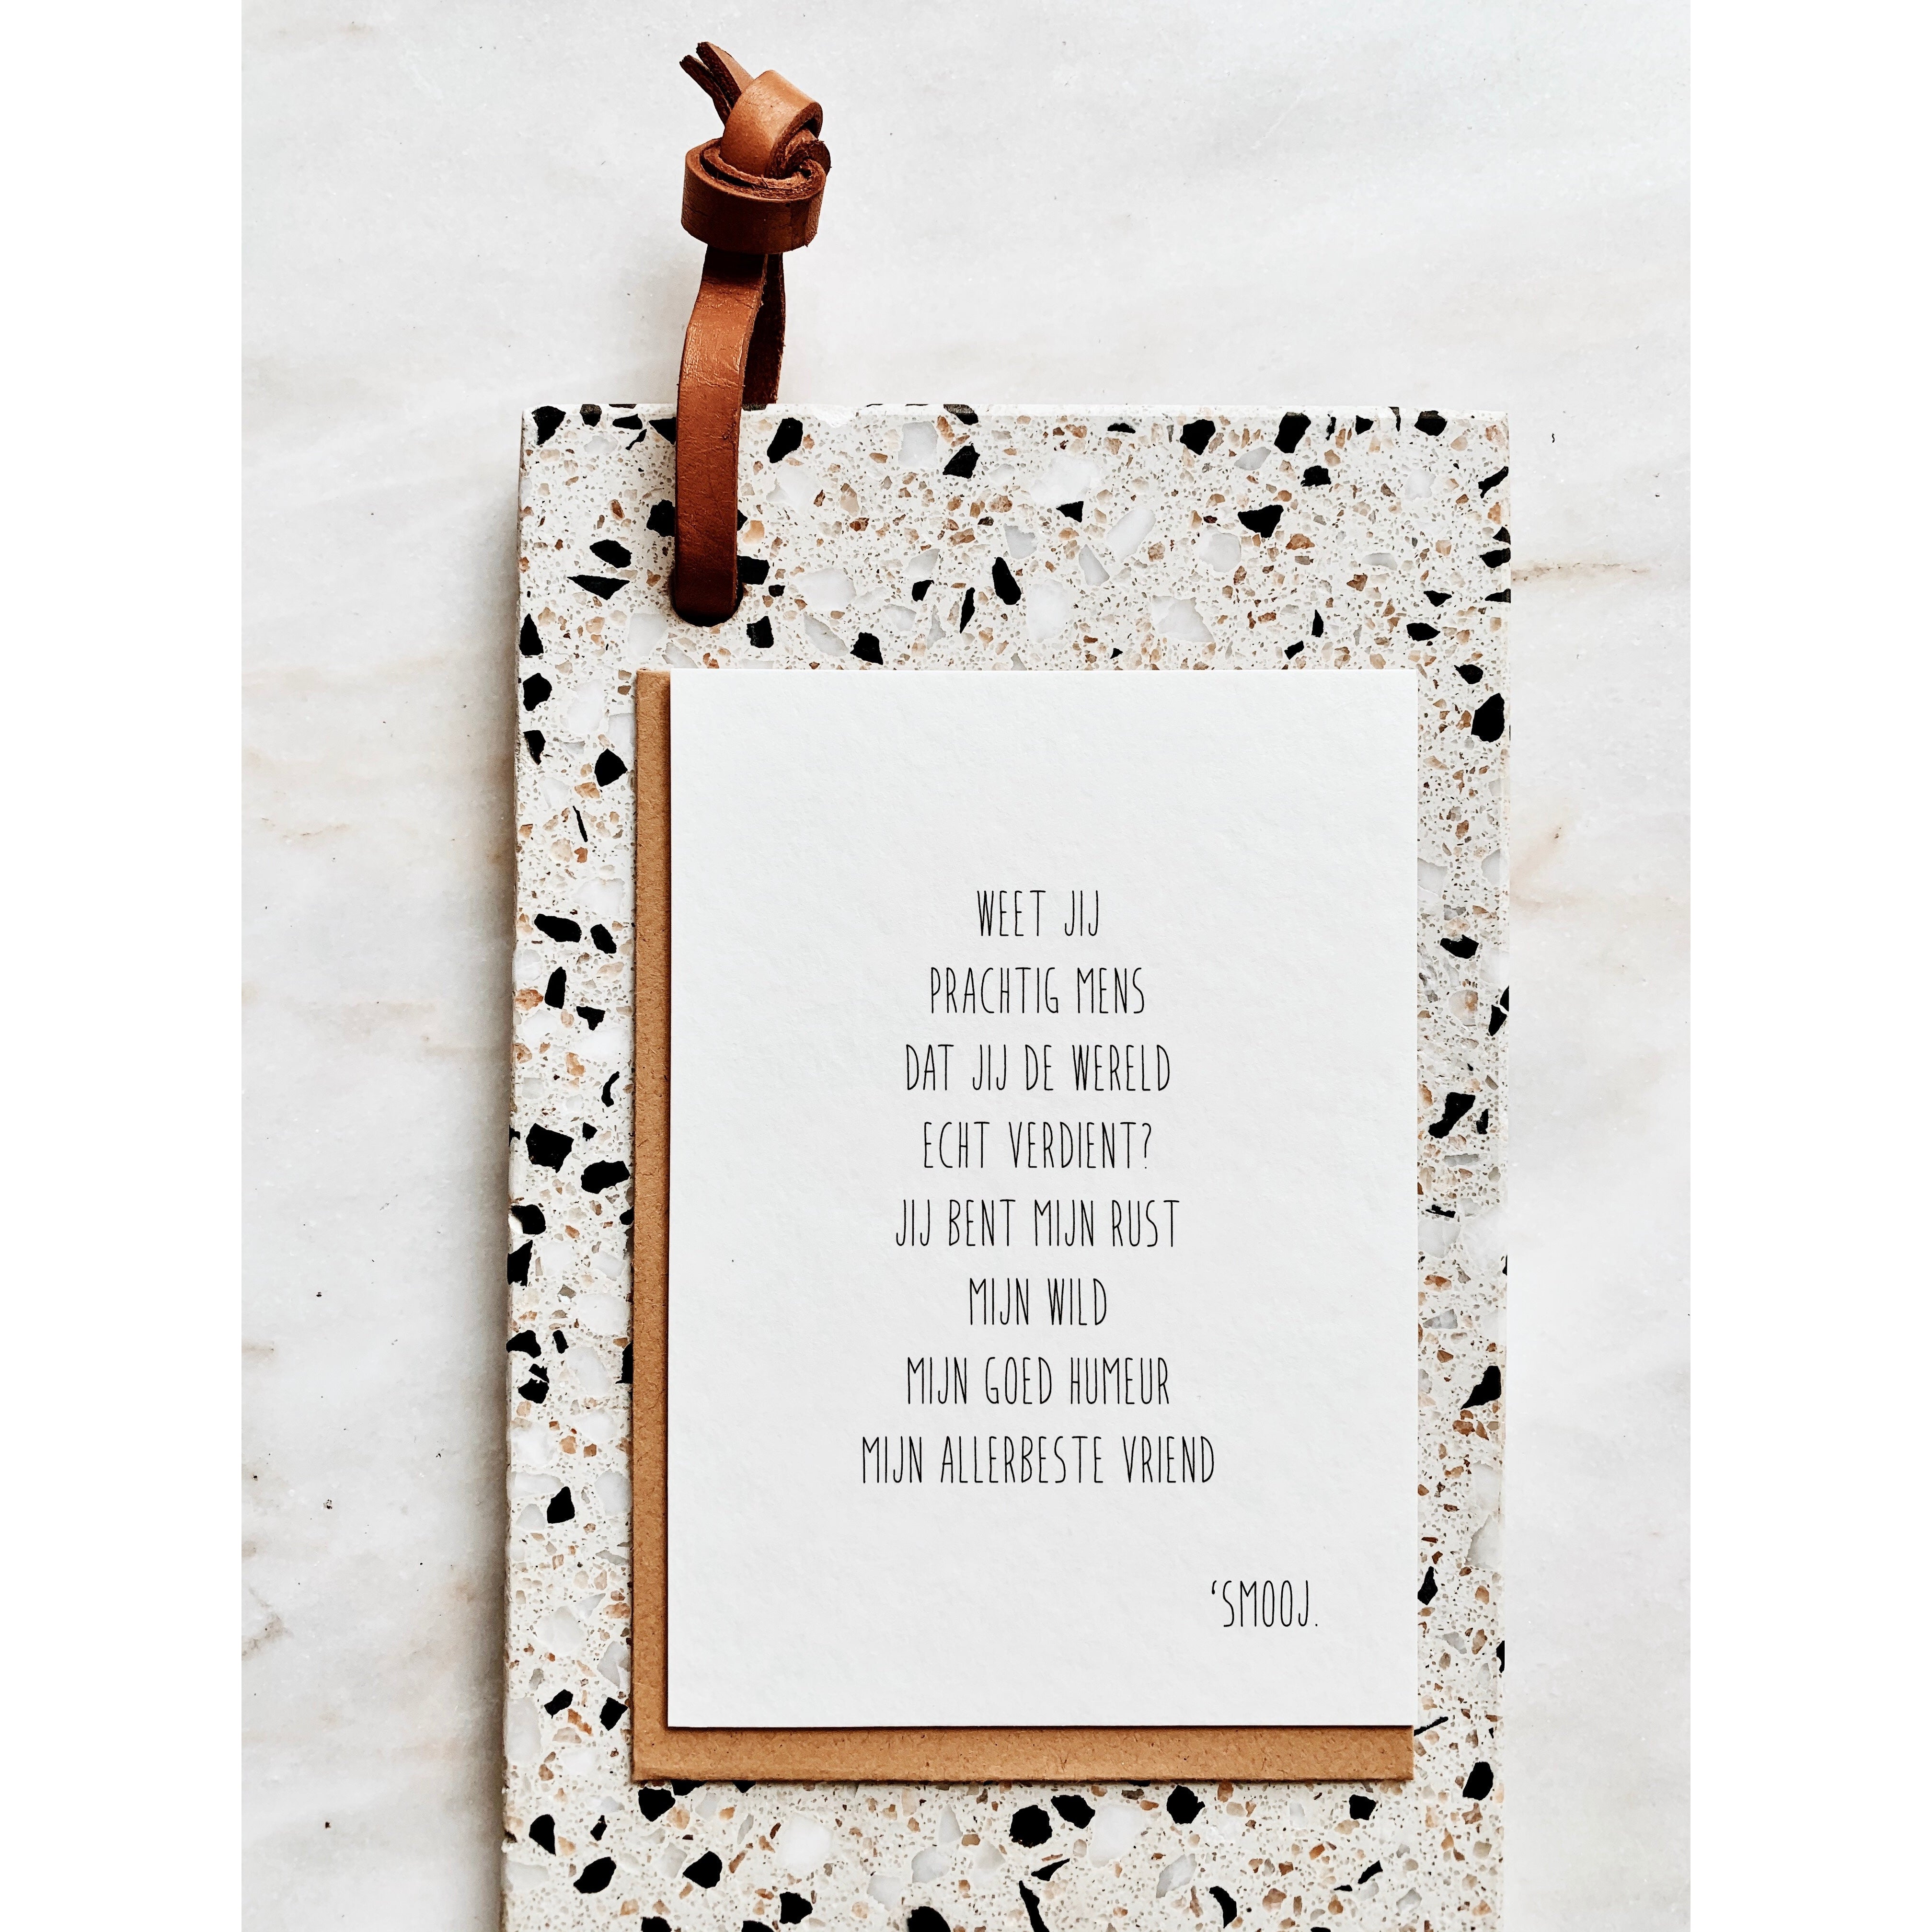 WEET JIJ
PRACHTIG MENS
DAT JIJ DE WERELD
ECHT VERDIENT?
JIJ BENT MIJN RUST
MIJN WILD
MIJN GOED HUMEUR
MIJN ALLERBESTE VRIEND
‘SMOOJ.